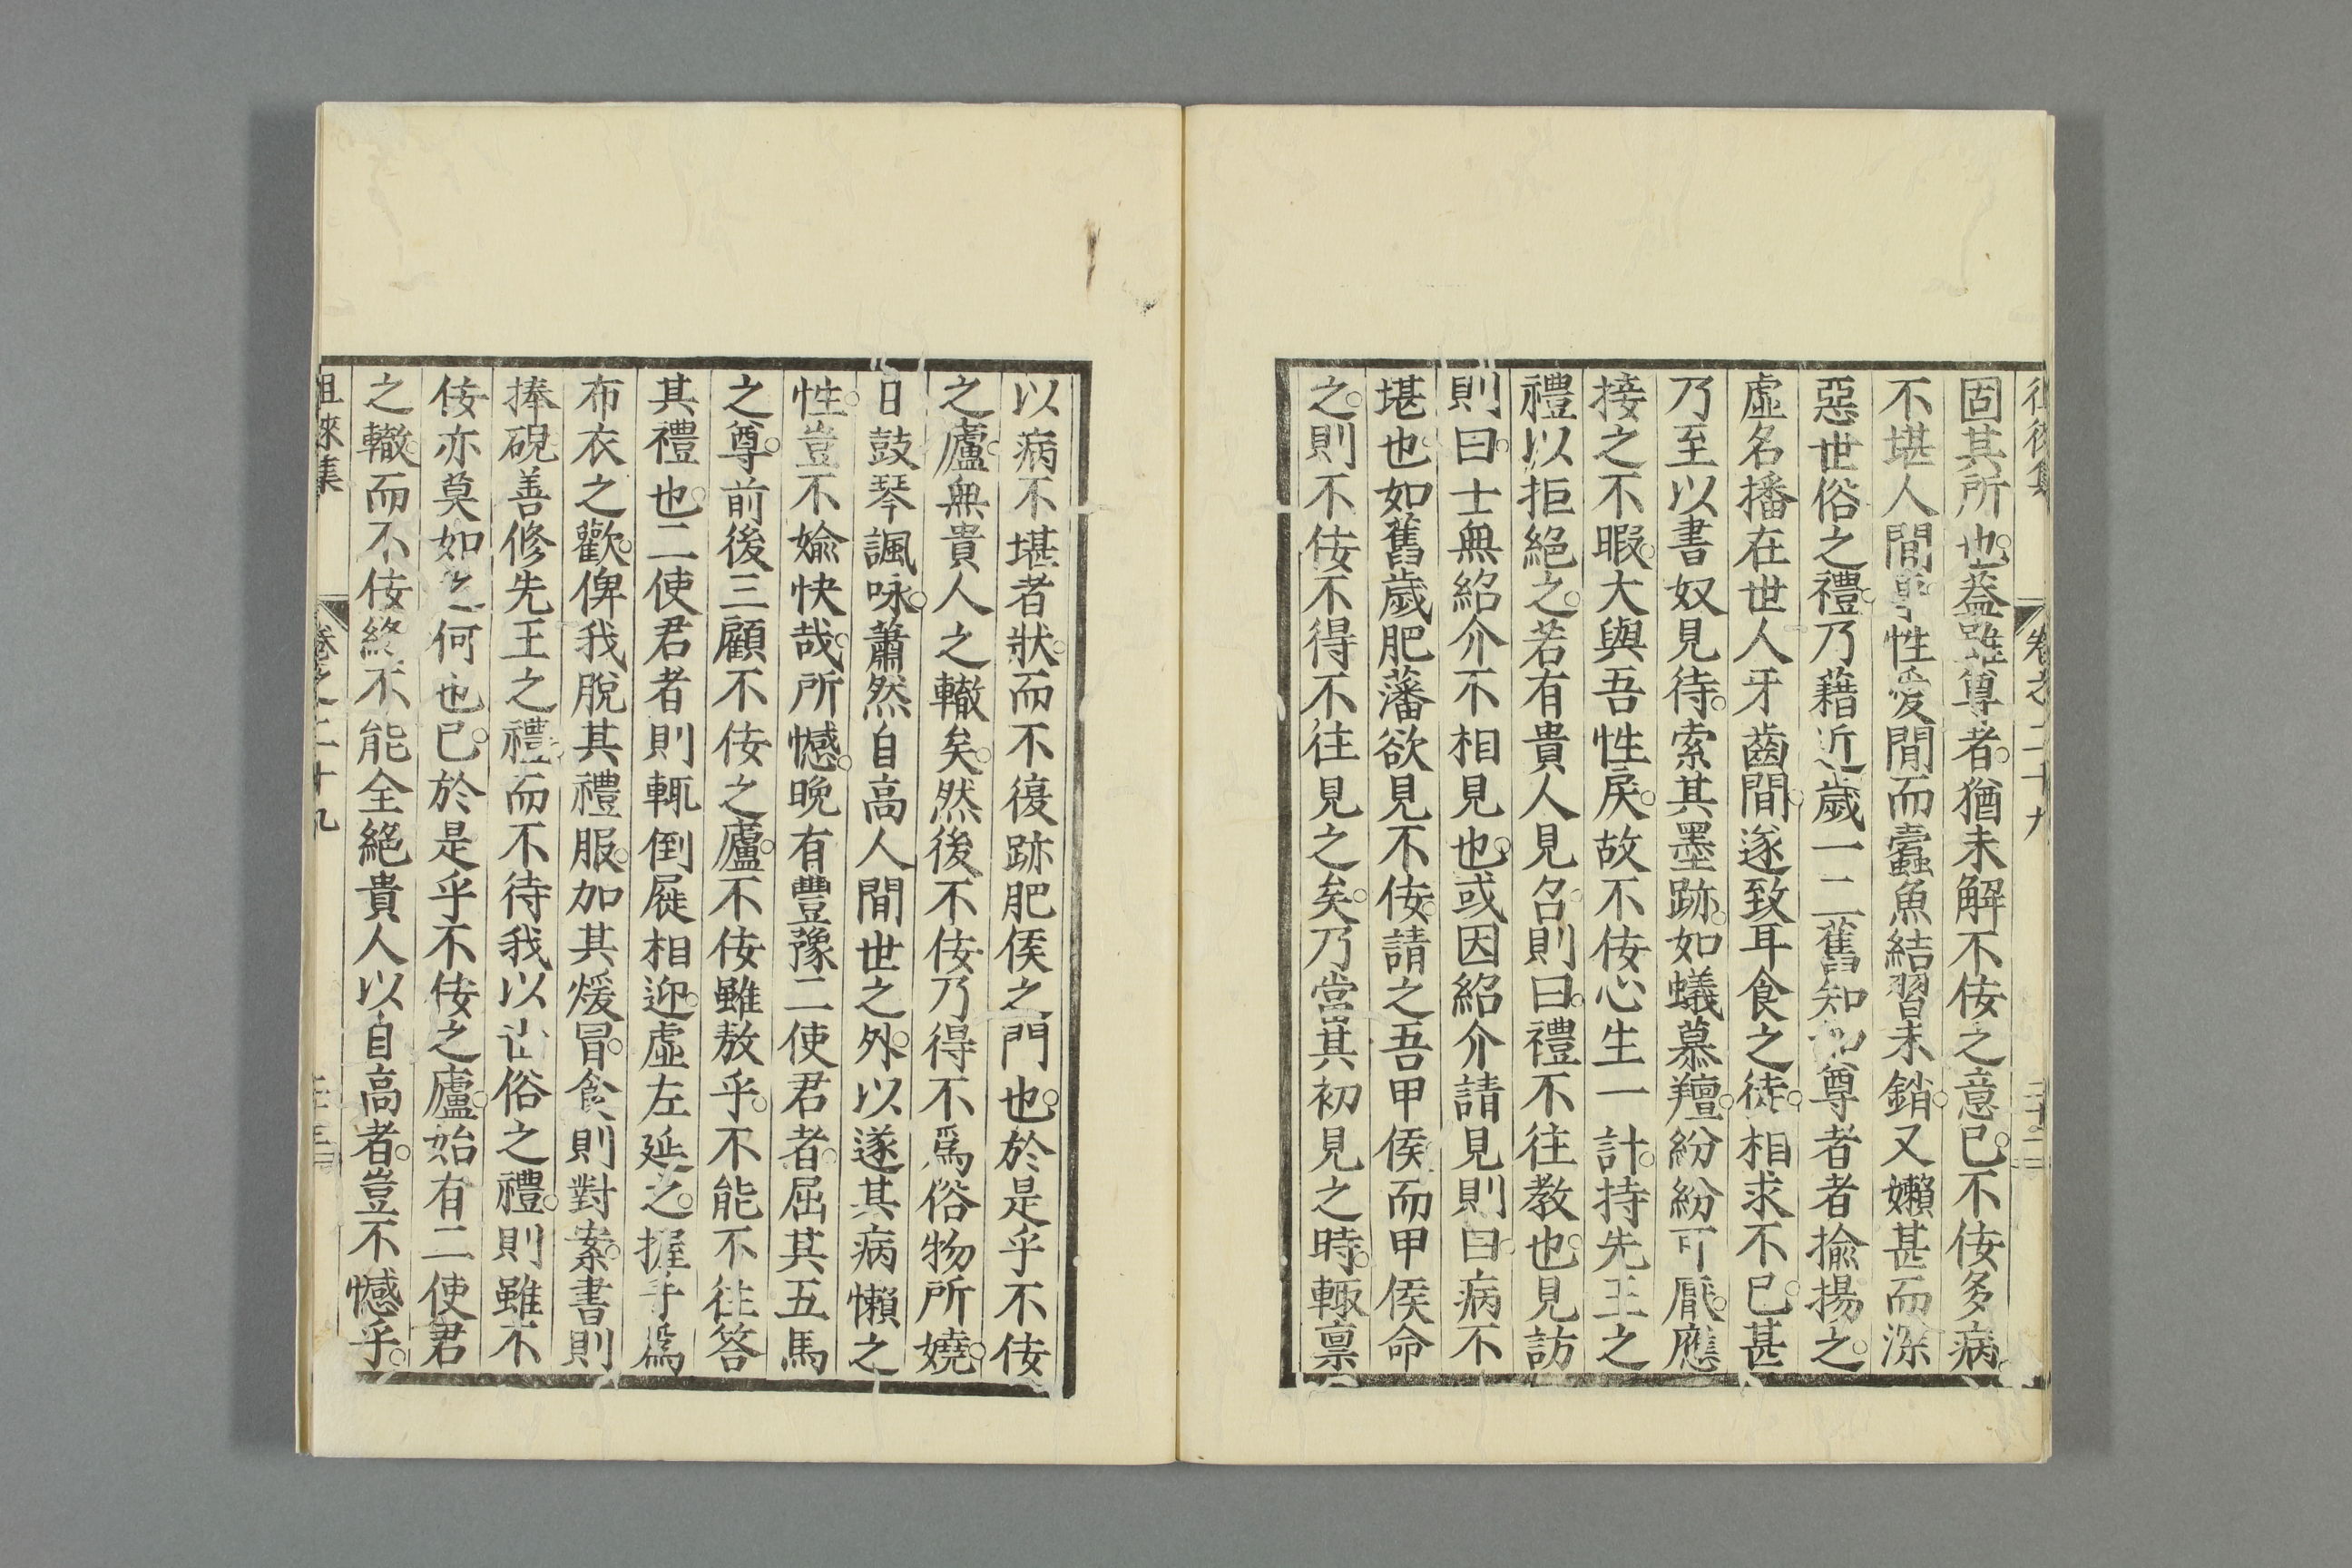 卷之二十九
固其所也。蓋雖尊者。猶未解不佞之意已。不佞多病。
不堪人間事。性愛閒而蠹魚結習未銷。又嬾甚而深
惡世俗之禮。乃藉近歲一二舊知如尊者者揄揚之。
虛名播在世人牙齒間。遂致耳食之徒。相求不已。甚
乃至以書奴見待。索其墨跡。如蟻慕羶。紛紛可厭。應
接之不暇。大與吾性戾。故不佞心生一計。持先王之
禮以拒絕之。若有貴人見召。則曰。禮不往教也。見訪
則曰。士無紹介不相見也。或因紹介請見則曰。病不
堪也。如舊歲肥藩欲見不佞。請之吾甲侯。而甲侯命
之。則不佞不得不往見之矣。乃當其初見之時。輒稟
以病不堪者狀。而不復跡肥侯之門也。於是乎不佞
之廬。無貴人之轍矣。然後不佞乃得不爲俗物所嬈。
日鼓琴諷咏。蕭然自高人間世之外。以遂其病懶之
性。豈不媮快哉。所憾。晚有豐豫二使君者。屈其五馬
之尊。前後三顧不佞之廬。不佞雖敖乎。不能不往答
其禮也。二使君者則輒倒屣相迎。虛左延之。握手爲
布衣之歡。俾我脫其禮服。加其煖冒。食則對案。書則
捧硯。善修先王之禮。而不待我以世俗之禮。則雖不
佞亦莫如之何也已。於是乎不佞之廬。始有二使君
之轍。而不佞終不能全絕貴人以自高者。豈不憾乎。
徂徠集
卷之二十九